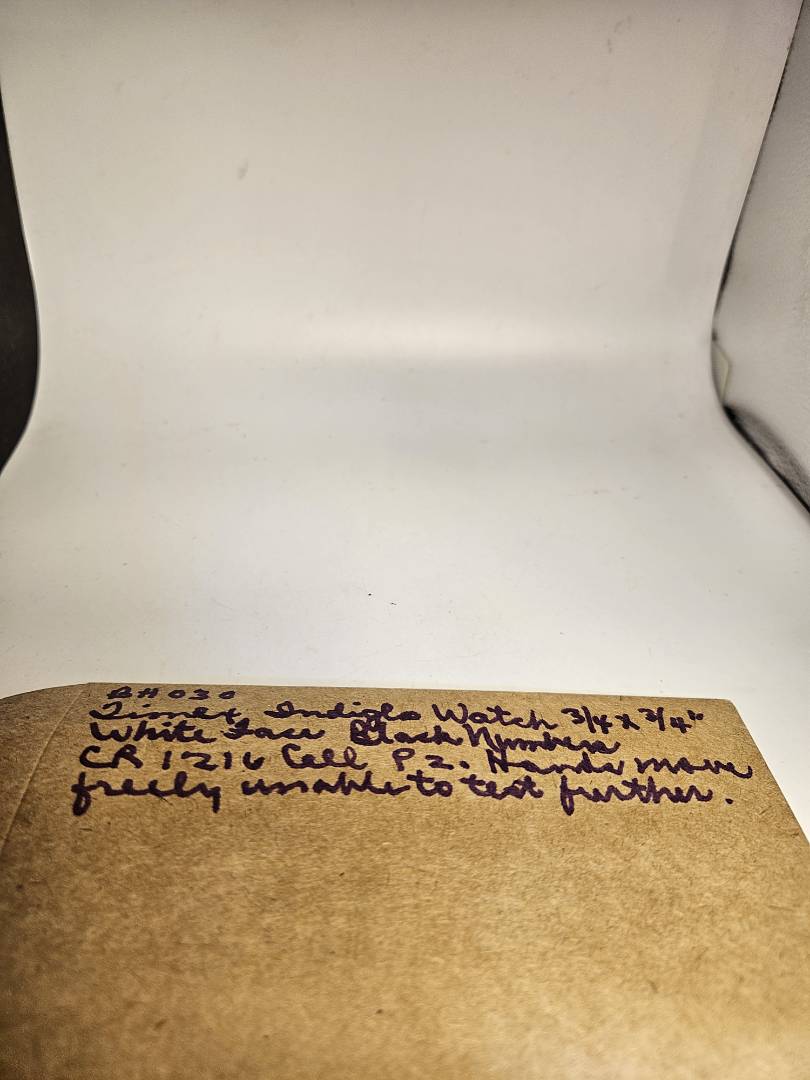 BH 030
Timex Indiglo Watch 3/4 x 3/4"
White Face Black Numbers
CR 1216 Cell P2. Hands move
freely unable to test further.